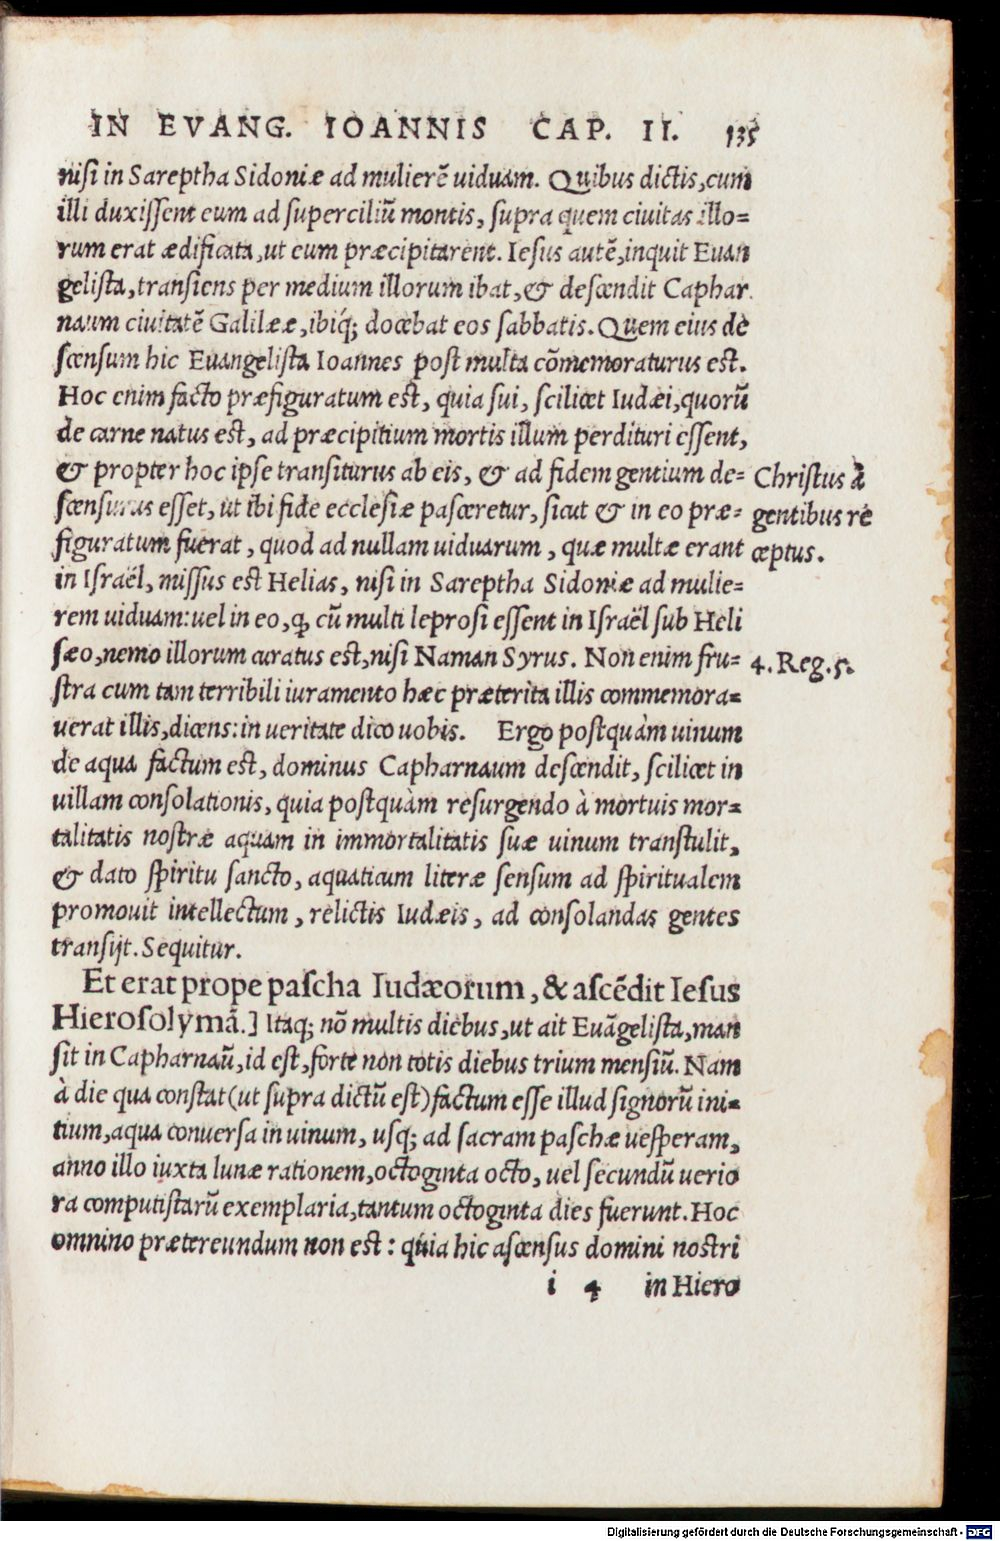 IN EVANG. IOANNIS CAP. II. 135
nisi in Sareptha Sidoniæ ad mulierẽ uiduam. Quibus dictis, cum
illi duxissent eum ad superciliũ montis, supra quem ciuitas illo=
rum erat ædificata, ut eum præcipitarent. Iesus autẽ, inquit Euan
gelista, transiens per medium illorum ibat, & descendit Caphar
naum ciuitatẽ Galilææ, ibiq́; docebat eos sabbatis. Quem eius de
scensum hic Euangelista Ioannes post multa cõmemoraturus est.
Hoc enim facto præfiguratum est, quia sui, scilicet Iudæi, quorũ
de carne natus est, ad præcipitium mortis illum perdituri essent,
& propter hoc ipse transiturus ab eis, & ad fidem gentium de=
Christus à
scensurus esset, ut ibi fide ecclesiæ pasceretur, sicut & in eo præ=
gentibus re
figuratum fuerat, quod ad nullam uiduarum, quæ multæ erant
ceptus.
in Israël, missus est Helias, nisi in Sareptha Sidoniæ ad mulie=
rem uiduam: uel in eo, ꝙ cũ multi leprosi essent in Israël sub Heli
sæo, nemo illorum curatus est, nisi Naman Syrus. Non enim fru=
4. Reg. 5.
stra cum tam terribili iuramento hæc præterita illis commemora=
uerat illis, dicens: in ueritate dico uobis. Ergo postquàm uinum
de aqua factum est, dominus Capharnaum descendit, scilicet in
uillam consolationis, quia postquàm resurgendo à mortuis mor=
talitatis nostræ aquam in immortalitatis suæ uinum transtulit,
& dato spiritu sancto, aquaticum literæ sensum ad spiritualem
promouit intellectum, relictis Iudæis, ad consolandas gentes
transijt. Sequitur.
Et erat prope pascha Iudæorum, & ascẽdit Iesus
Hierosolymã.] Itaq; nõ multis diebus, ut ait Euãgelista, man
sit in Capharnaũ, id est, forte non totis diebus trium mensiũ. Nam
à die qua constat (ut supra dictũ est) factum esse illud signorũ ini=
tium, aqua conuersa in uinum, usq; ad sacram paschæ uesperam,
anno illo iuxta lunæ rationem, octoginta octo, uel secundũ uerio
ra computistarũ exemplaria, tantum octoginta dies fuerunt. Hoc
omnino prætereundum non est: quia hic ascensus domini nostri
i 4 in Hiero
Digitalisierung gefördert durch die Deutsche Forschungsgemeinschaft - DFG